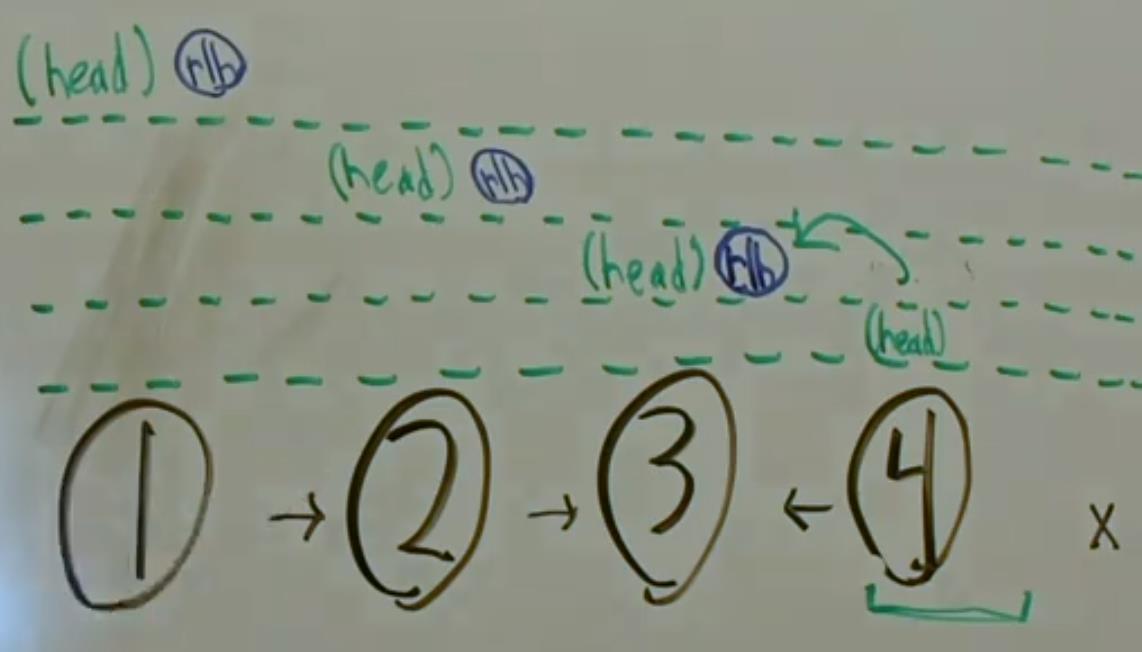 (head) rlh
(head) rlh
(head) rlh
(head)
1 → 2 → 3 ← 4 X